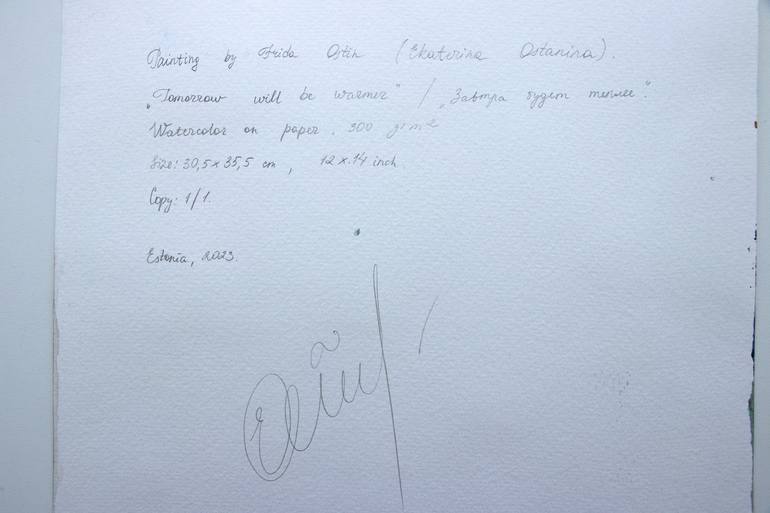 Painting by Frida Ostin (Ekaterina Ostanina).
„Tomorrow will be warmer" / „Завтра будет теплее".
Watercolor on paper. 300 gsm
Size: 30,5 x 35,5 cm, 12 x 14 inch
Copy: 1/1.
Estonia, 2023.